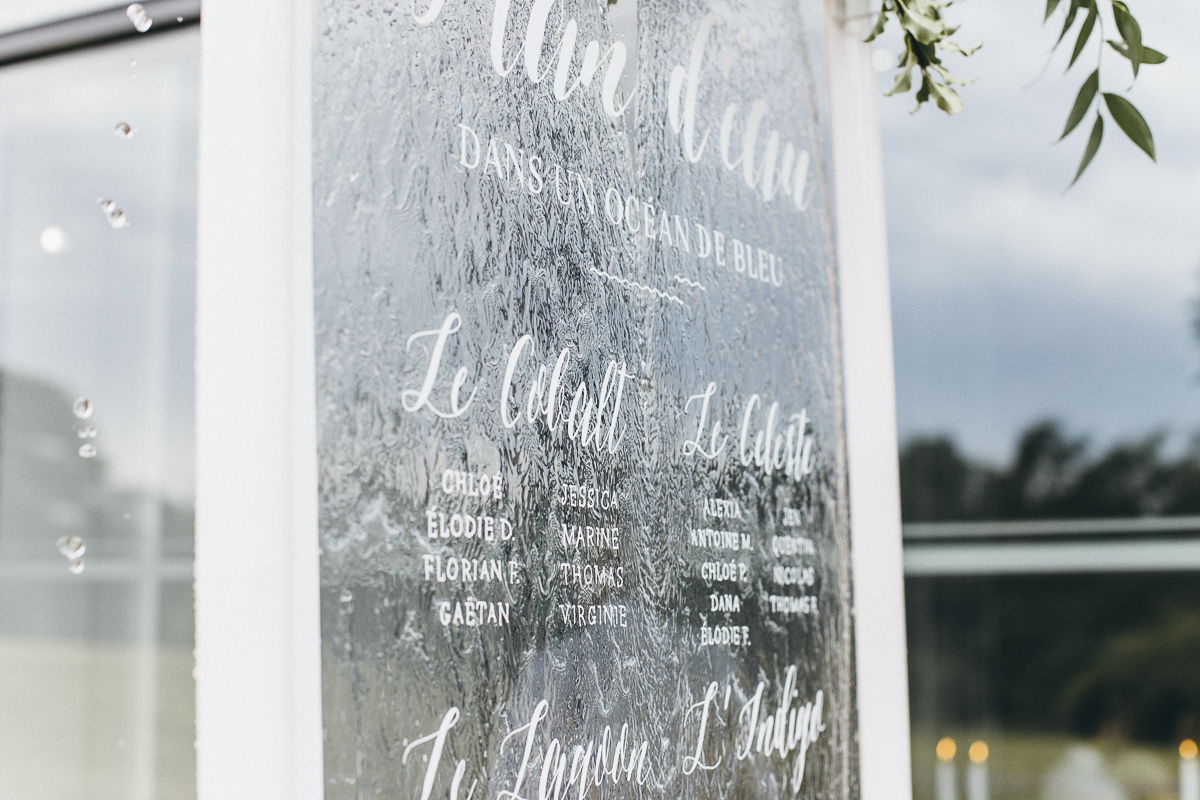 Plan d'eau
DANS UN OCÉAN DE BLEU
Le Cobalt
CHLOÉ
ÉLODIE D.
FLORIAN F.
GAËTAN
JESSICA
MARINE
THOMAS
VIRGINIE
Le Céleste
ALEXIA
ANTOINE M.
CHLOÉ P.
DANA
ÉLODIE F.
JEN
QUENTIN
NICOLAS
THOMAS F.
Le Lagoon
L'Indigo